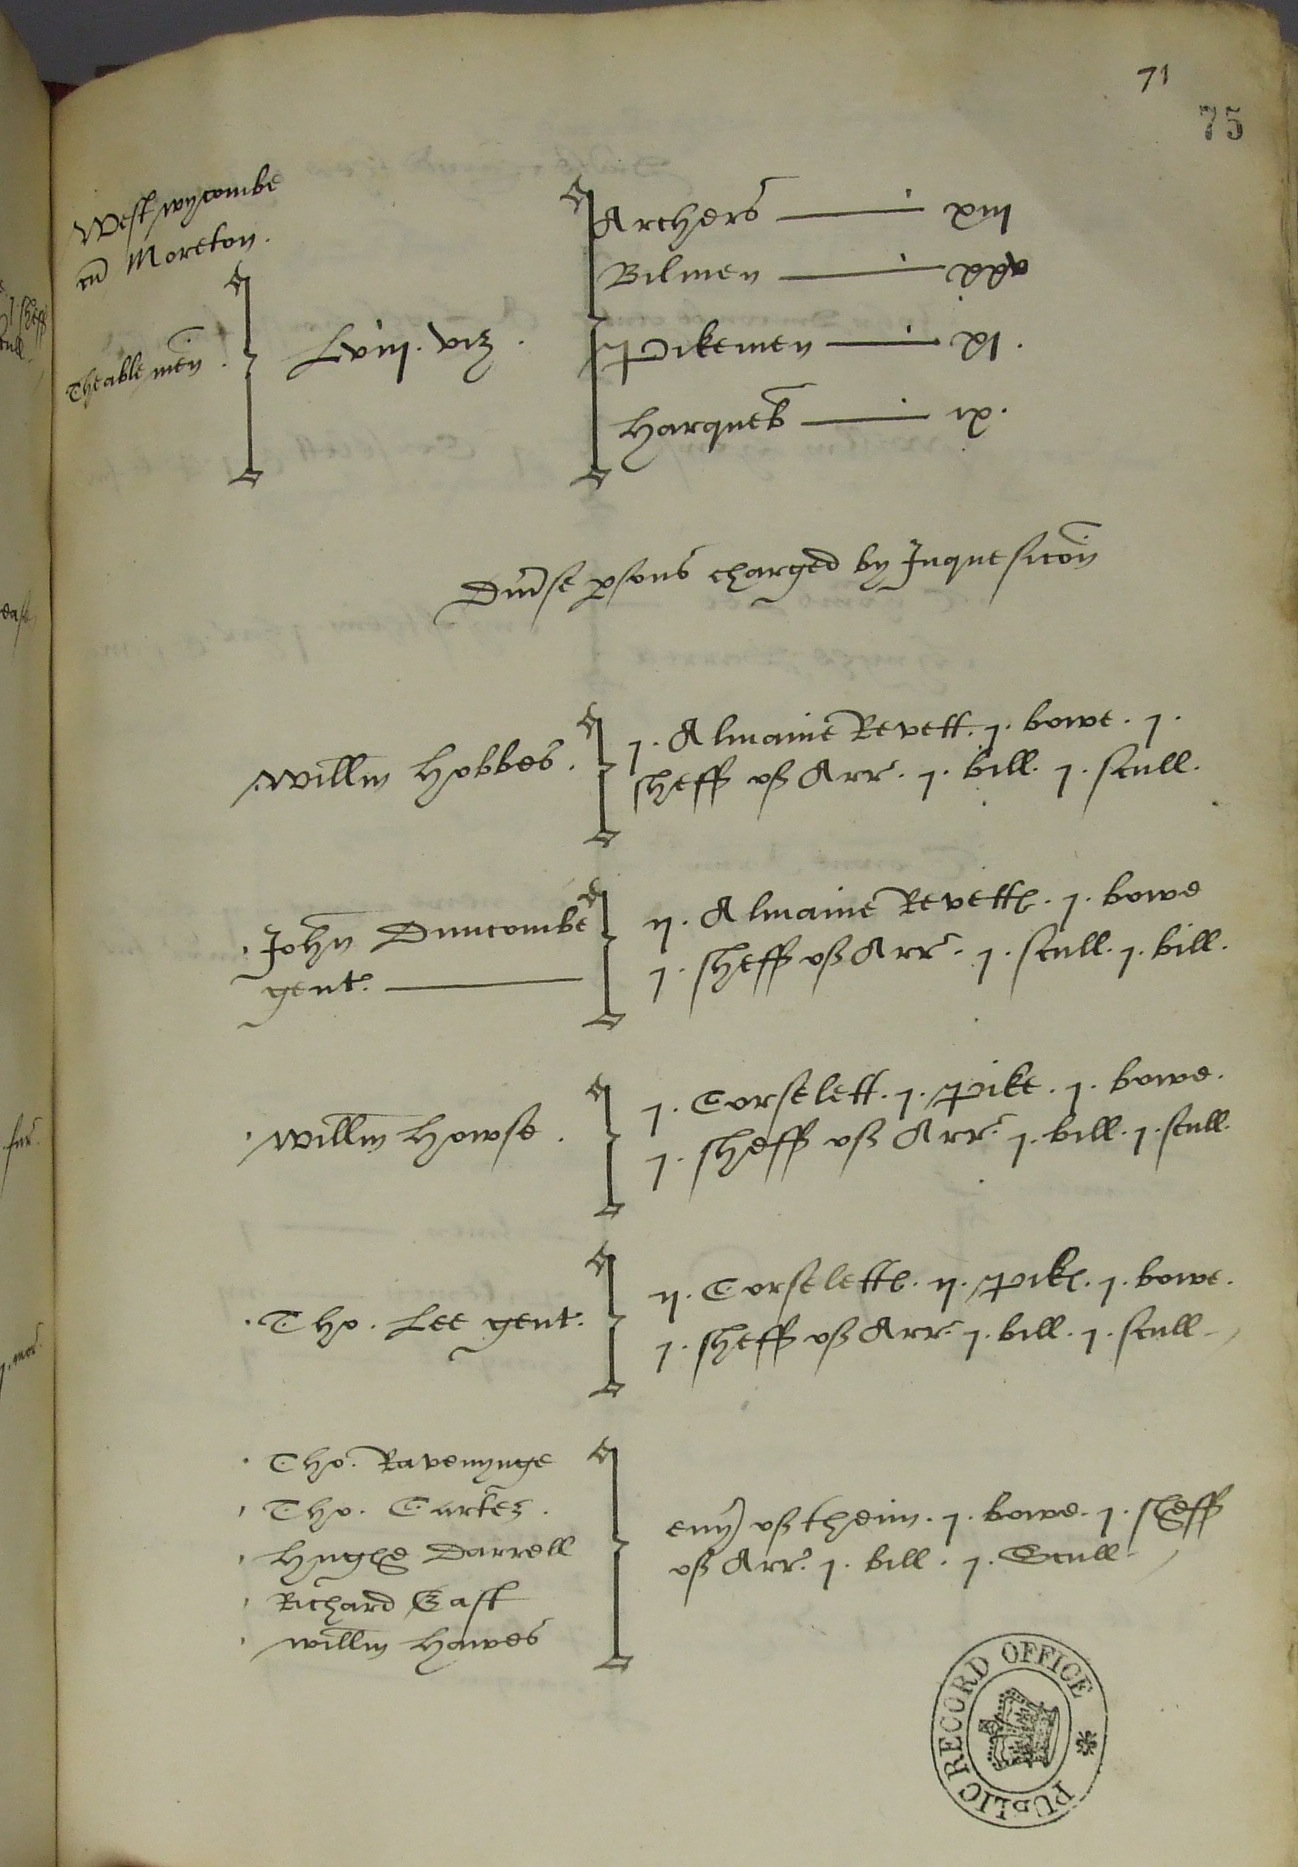 71
75
West wycombe
cu Moreton.
Theable men. Lviij. viz.
Archers xiij
Bilmen xxv
Pikemen xj.
Harqueb ix.
Diuse psons charged by Inquesicon
Willm Hobbes. j. Almaine Revett. j. bowe. j.
sheff of Arr. j. bill. j. scull.
John Duncombe ij. Almaine Revetts. j. bowe
gent. j. sheff of Arr. j. scull. j. bill.
Willm Howse. j. Corselett. j. pike. j. bowe.
j. sheff of Arr. j. bill. j. scull.
Tho. Lee gent. ij. Corseletts. ij. pikes. j. bowe.
j. sheff of Arr. j. bill. j. scull
Tho. Ravenynge
Tho. Carter.
Hughe Darrell
Richard East
Willm Hawes
euy of theim. j. bowe. j. sheff
of Arr. j. bill. j. Scull
PUBLIC RECORD OFFICE